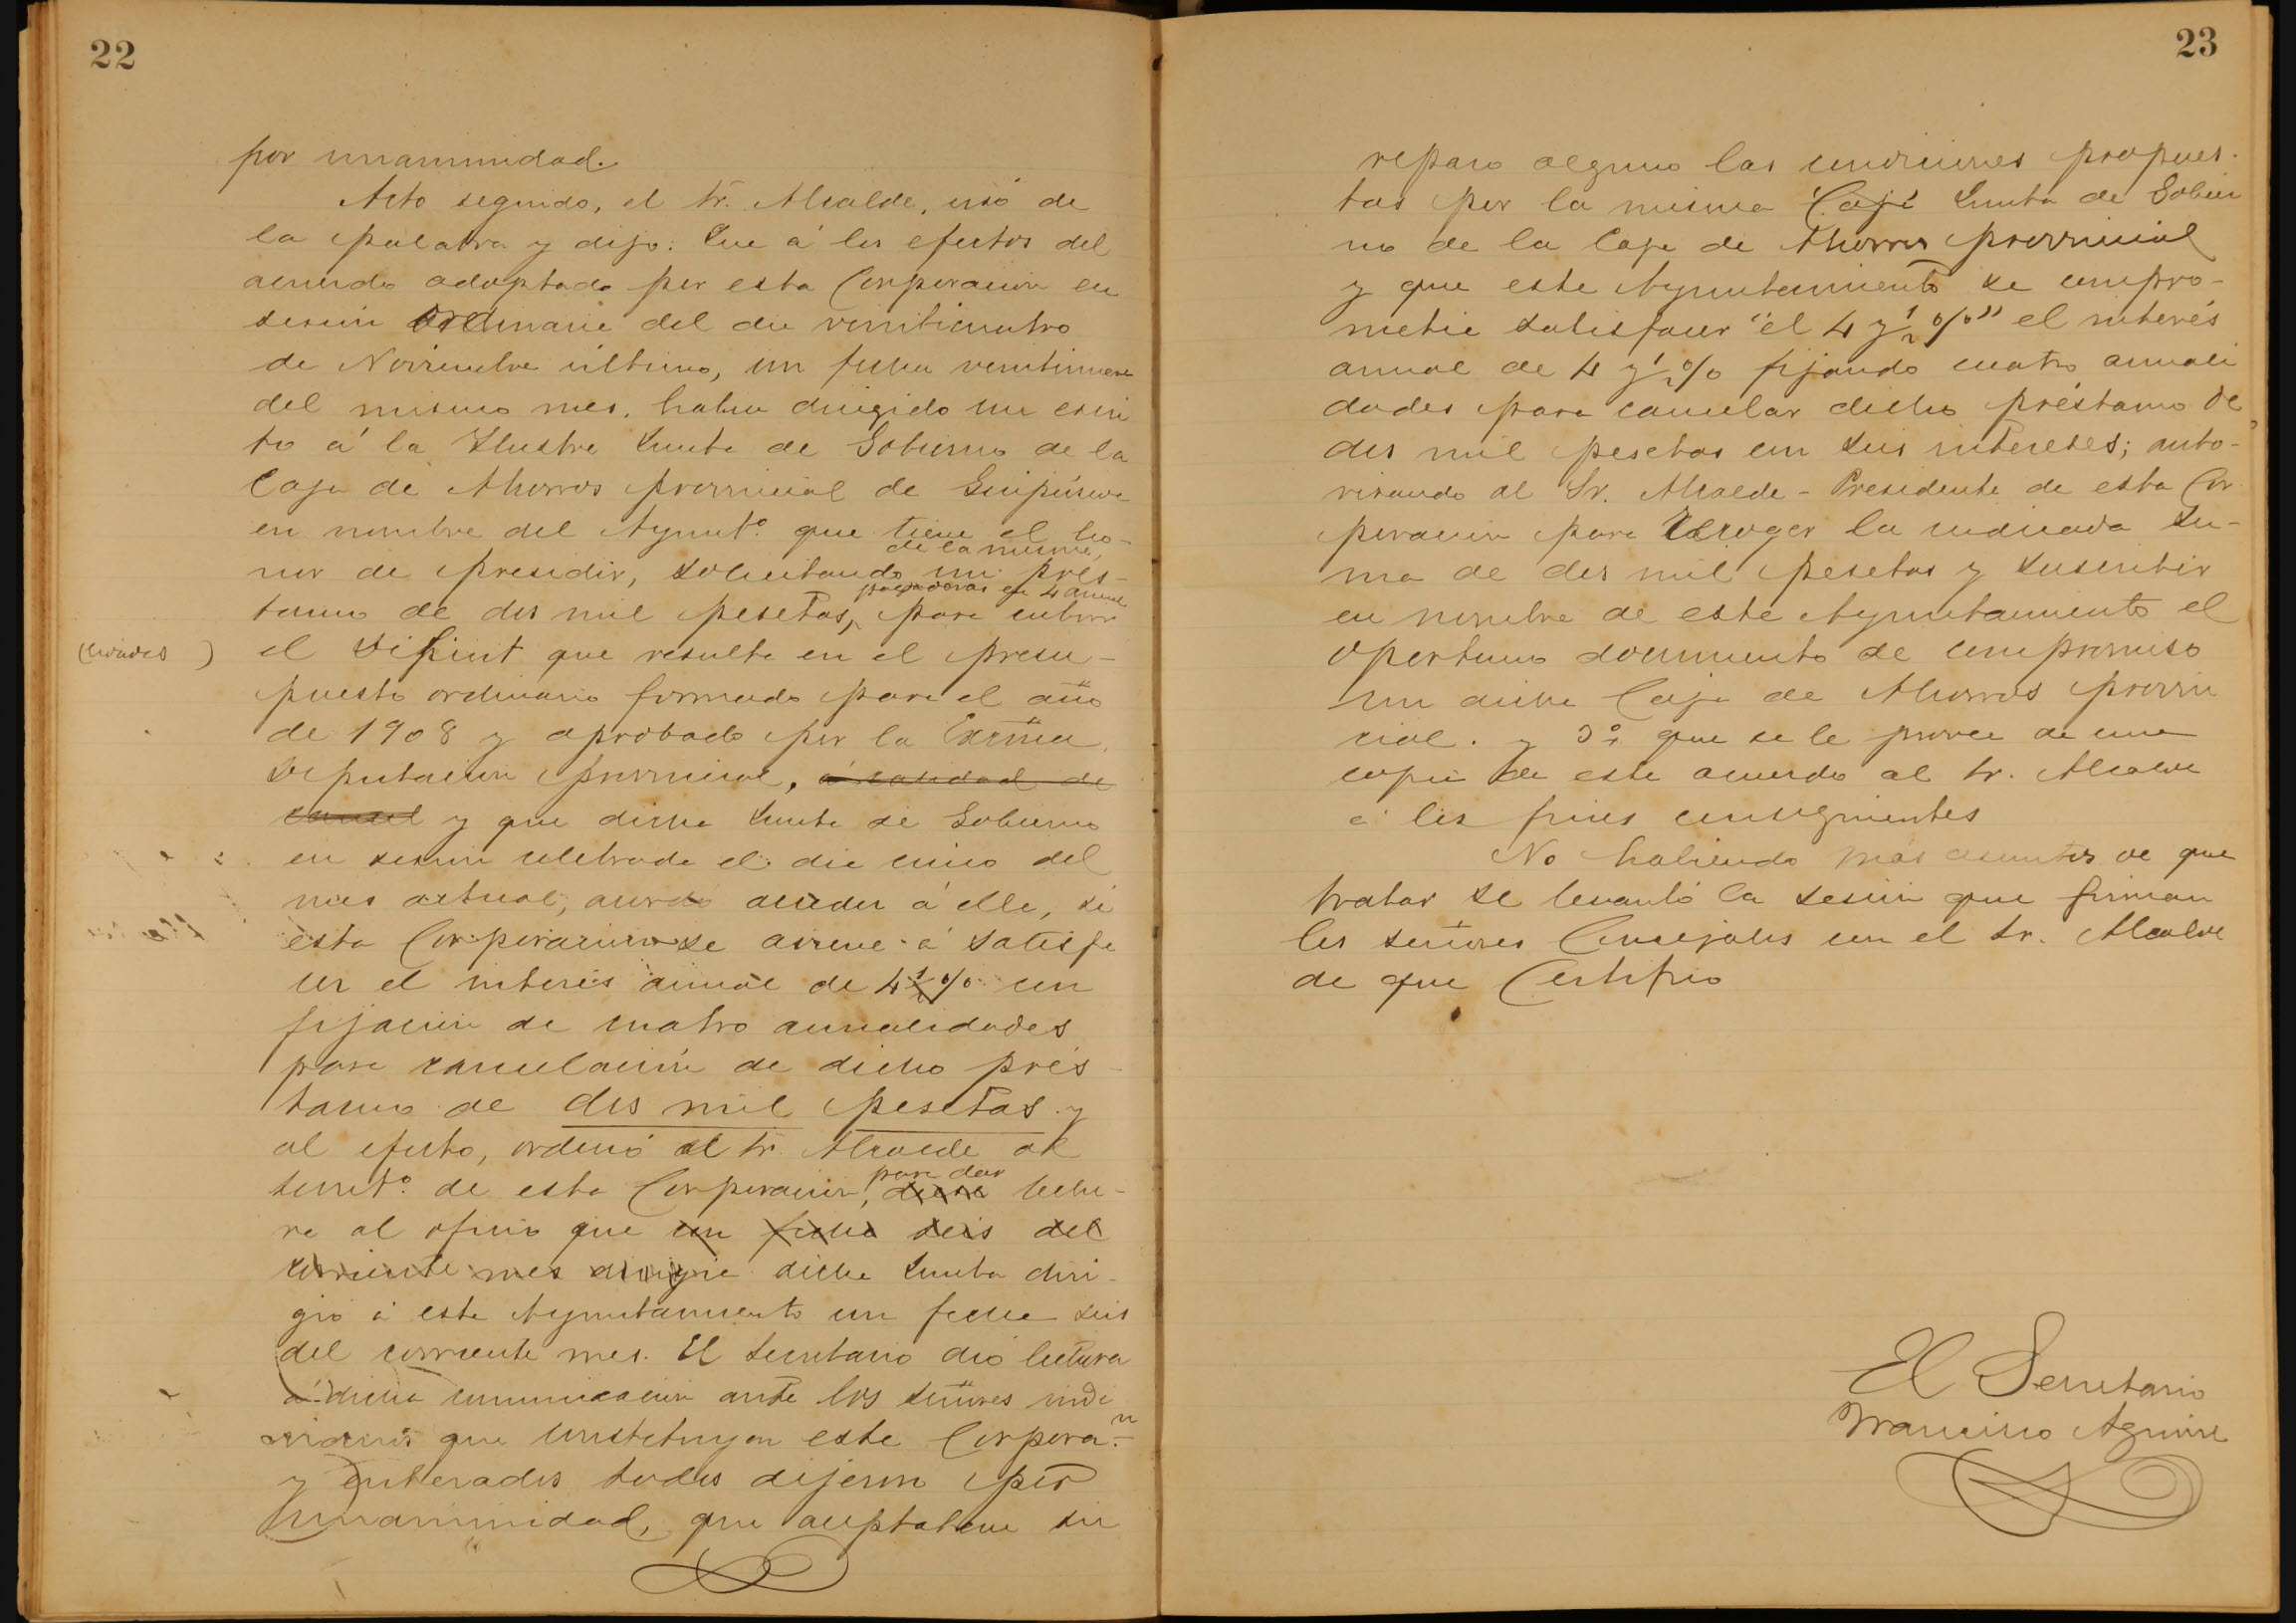 22
por unanimidad.
Acto seguido, el Sr. Alcalde, usó de
la palabra y dijo: Que á los efectos del
acuerdo adoptado por esta Corporacion en
sesión ordinaria del dia veinticuatro
de Noviembre último, con fecha veintinueve
del mismo mes, habia dirigido un escri
to á la Ilustre Junta de Gobierno de la
Caja de Ahorros provincial de Guipúzcoa
en nombre del Ayunt.º que tiene el ho-
nor de presidir, solicitando de la misma, un prés-
tamo de dos mil pesetas, pagaderas en 4 anua para cubrir
(lidades) el déficit que resulta en el presu-
puesto ordinario formado para el año
de 1908 y aprobado por la Excma.
Diputacion provincial, á calidad de
y que dicha Junta de Gobierno
en sesion celebrada el dia cinco del
mes actual, acordó acceder á ello, si
esta Corporacion se aviene á satisfa
cer el interés anual de 4 ½ % con
fijacion de cuatro anualidades
para cancelación de dicho prés-
tamo de dos mil pesetas y
al efecto, ordenó el Sr. Alcalde al
Secret.º de esta Corporacion, para dar lectu-
ra al oficio que con fecha seis del
corriente mes dirigió dicha Junta diri-
gió á este Ayuntamiento con fecha seis
del corriente mes. El Secretario dió lectura
á dicha comunicacion ante los señores
que constituyen esta Corpora.n
y enterados todos dijeron por
unanimidad, que aceptaban sin
23
reparo alguno las condiciones propues-
tas por la misma Caja Junta de Gobier
no de la Caja de Ahorros provincial
y que este Ayuntamiento se compro-
metia satisfacer "el 4 y ½ %" el interés
anual de 4 y ½ % fijando cuatro anuali
dades para cancelar dicho préstamo de
dos mil pesetas con sus intereses; auto-
rizando al Sr. Alcalde-Presidente de esta Cor
poracion para recoger la indicada su-
ma de dos mil pesetas y suscribir
en nombre de este Ayuntamiento el
oportuno documento de compromiso
con dicha Caja de Ahorros provin
cial. y 3º que se le provea de una
copia de este acuerdo al Sr. Alcalde
á los fines consiguientes
No habiendo más asuntos de que
tratar se levantó la sesión que firman
los señores Concejales con el Sr. Alcalde
de que Certifico
El Secretario
Francisco Aguirre